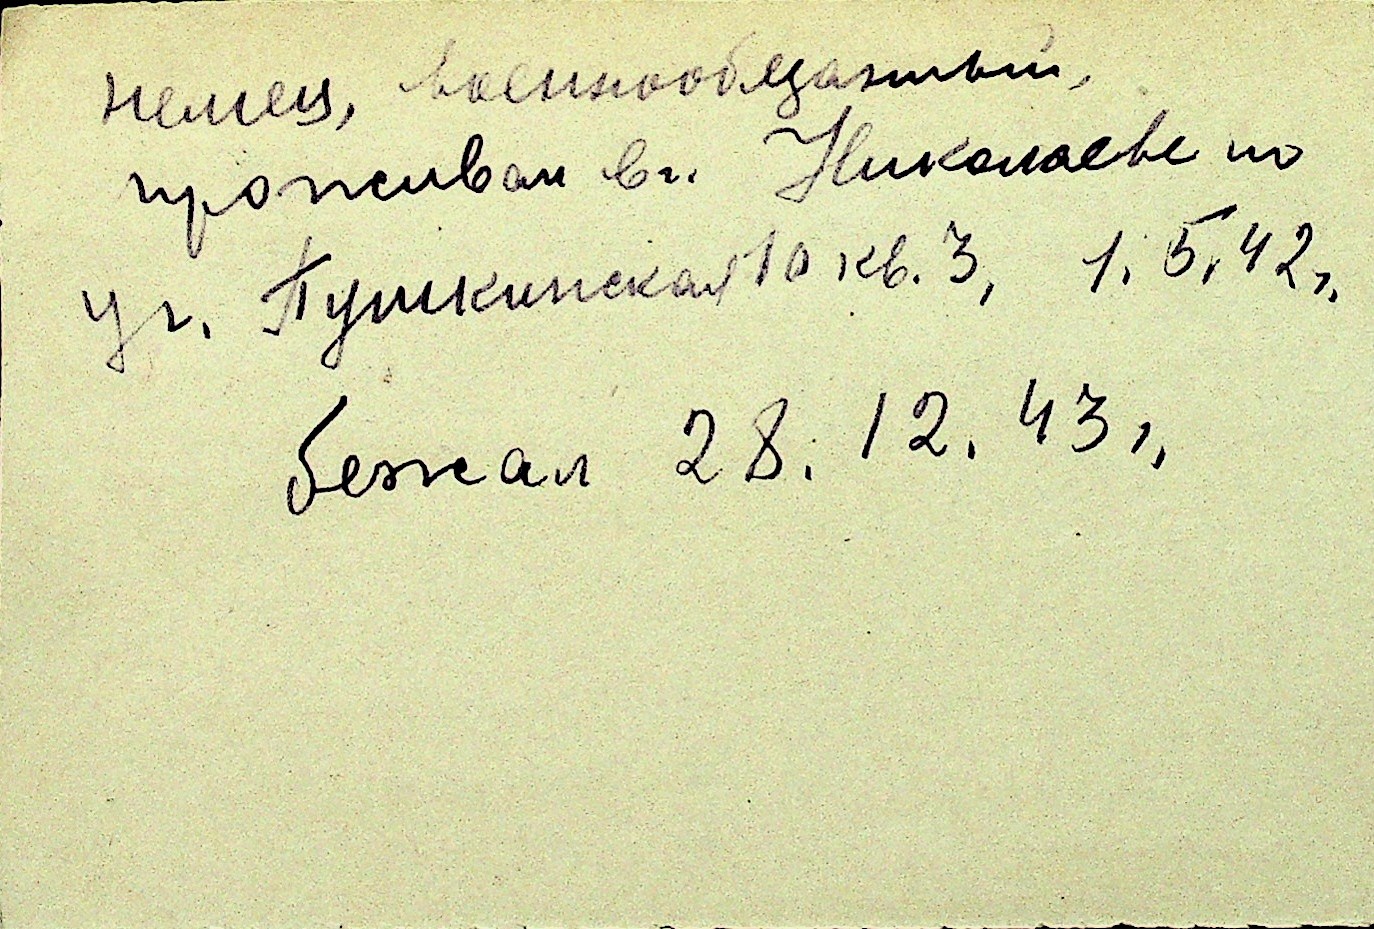 немец, военнообязанный,
проживал в г. Николаеве по
ул. Пушкинская 10 кв. 3, 1.5.42г.
бежал 28.12.43г.